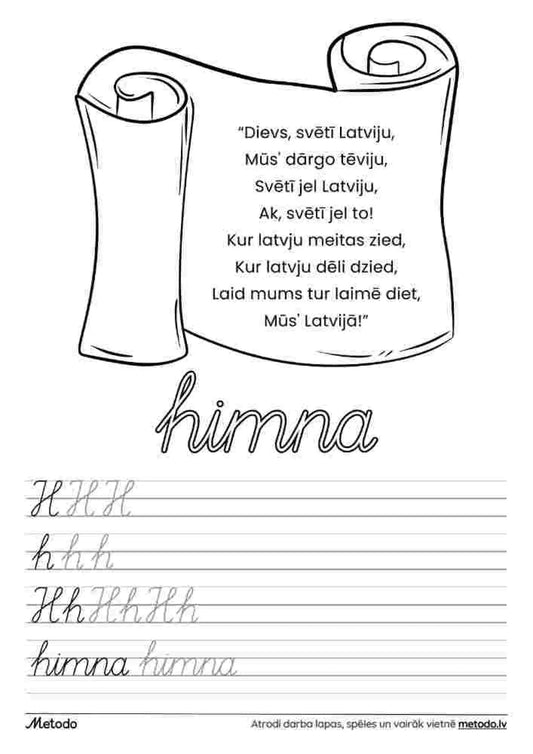 “Dievs, svētī Latviju,
Mūs' dārgo tēviju,
Svētī jel Latviju,
Ak, svētī jel to!
Kur latvju meitas zied,
Kur latvju dēli dzied,
Laid mums tur laimē diet,
Mūs' Latvijā!”
himna
H H H
h h h
Hh Hh Hh
himna himna
Metodo
Atrodi darba lapas, spēles un vairāk vietnē metodo.lv